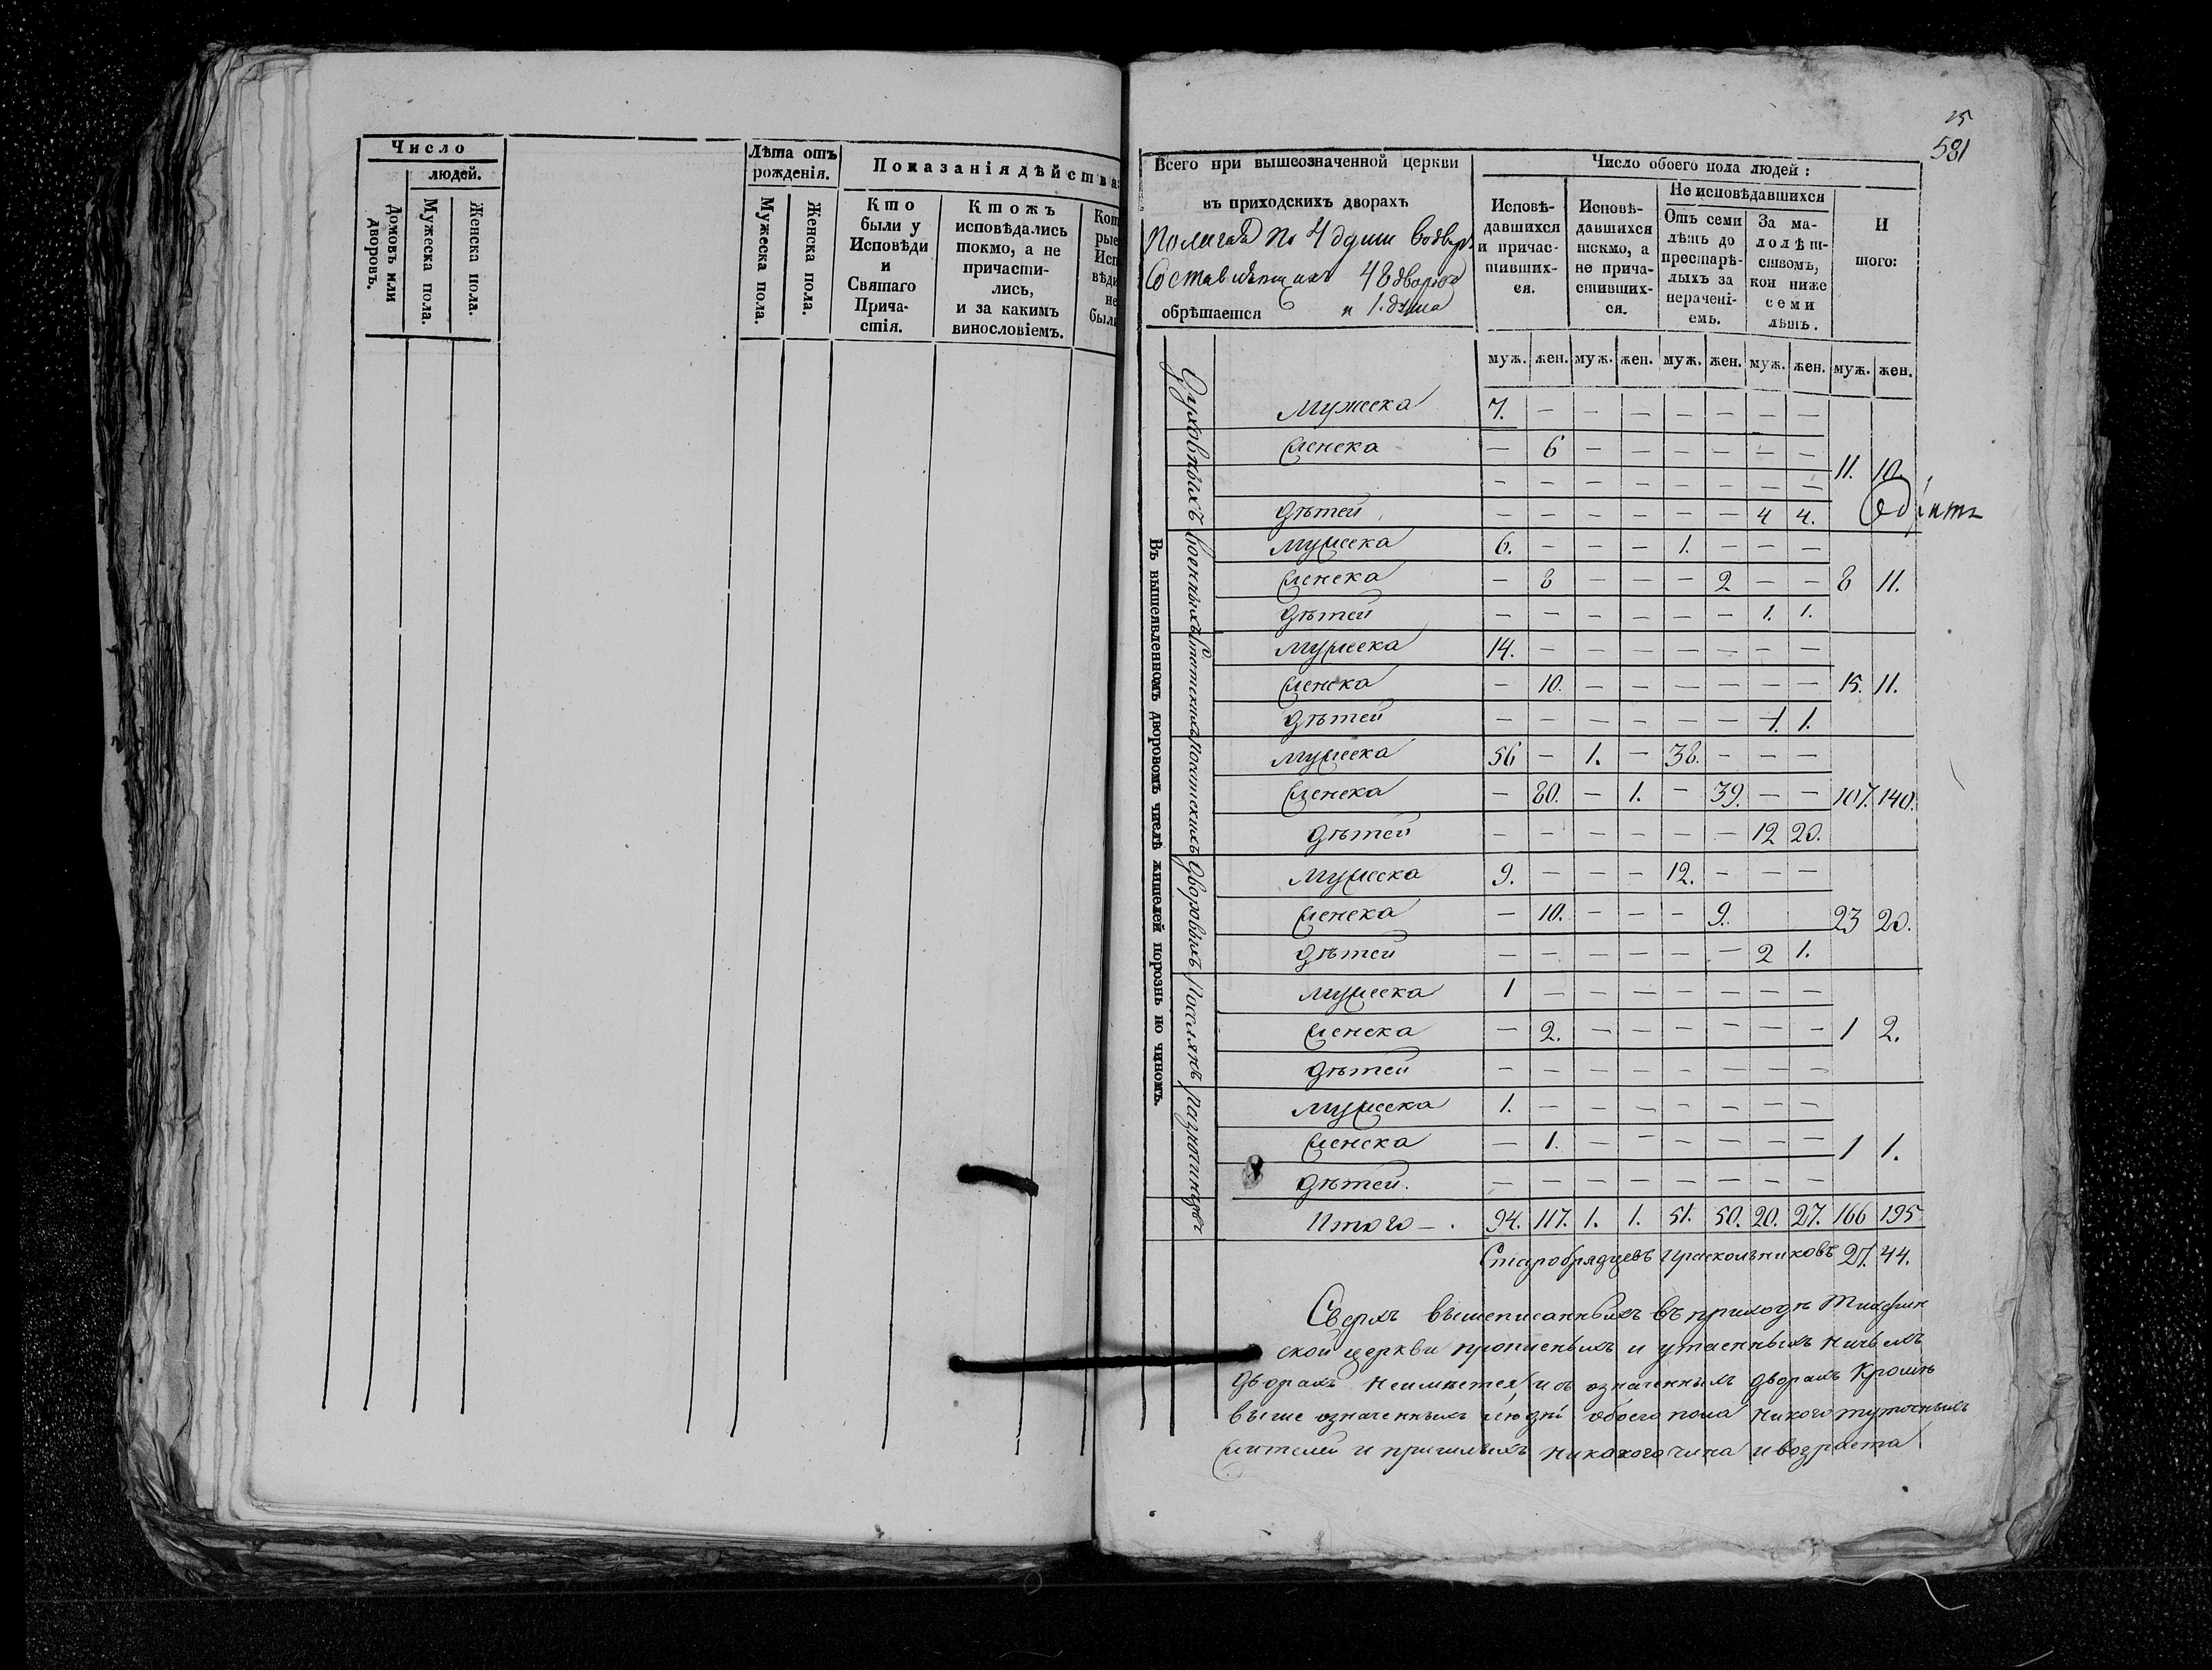 Число
людей.
Домовъ или дворовъ.
Мужеска пола.
Женска пола.
Лѣта отъ рожденія.
Мужеска пола.
Женска пола.
Показанія дѣйства
Кто были у Исповѣди и Святаго Прича-стія.
Ктожъ исповѣдались токмо, а не причасти-лись, и за какимъ винословіемъ.
Кот рые Исп вѣди не были
25
581
Всего при вышеозначенной церкви
въ приходскихъ дворахъ
Полагая по 4 души
48 дворовъ
обрѣтается и 1. душа
Число обоего пола людей:
Исповѣ-давшихся и причас-тивших-ся.
Исповѣ-давшихся токмо, а не прича-стивших-ся.
Не исповѣдавшихся
Отъ семи лѣтъ до престарѣ-лыхъ за нерачені-емъ.
За ма-лолѣт-ствомъ, кои ниже семи лѣтъ.
И того:
муж. жен. муж. жен. муж. жен. муж. жен. муж. жен.
Въ вышеявленномъ дворовомъ числѣ жителей порознь по чиномъ.
Духовныхъ
Мужеска 7. — — — — — — —
Женска — 6 — — — — — — 11. 10.
— — — — — — — —
Дѣтей — — — — — — 4 4.
Военныхъ
Мужеска 6. — — — 1. — — —
Женска — 8 — — — 2 — — 8 11.
Дѣтей — — — — — — 1. 1.
Статскихъ
Мужеска 14. — — — — — — —
Женска — 10. — — — — — — 15. 11.
Дѣтей — — — — — — 1. 1.
Посатскихъ
Мужеска 56 — 1. — 38. — — —
Женска — 80. — 1. — 39. — — 107. 140.
Дѣтей — — — — — — 12 20.
Дворовыхъ
Мужеска 9. — — — 12. — — —
Женска — 10. — — — 9. 23 20.
Дѣтей — — — — — — 2 1.
Поселянъ
Мужеска 1 — — — — — — —
Женска — 2. — — — — — — 1 2.
Дѣтей — — — — — — — —
Разночинцовъ
Мужеска 1. — — — — — — —
Женска — 1. — — — — — — 1 1.
Дѣтей. — — — — — — — —
Итого — . 94. 117. 1. 1. 51. 50. 20. 27. 166 195
Старобрядцевъ и раскольниковъ 27. 44.
Сверхъ вышеписанныхъ въ приходѣ Тихфин
ской церкви прописныхъ и утаенныхъ ничьихъ
дворахъ неимѣется, и въ означенныхъ дворахъ кромѣ
выше означенныхъ людей обоего пола никого туточныхъ
жителей и пришлыхъ никакого чина и возраста